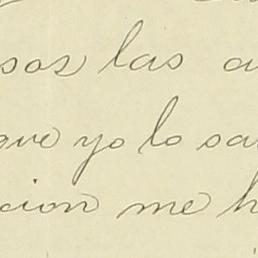 sos las a
que yo lo sa
cion me h